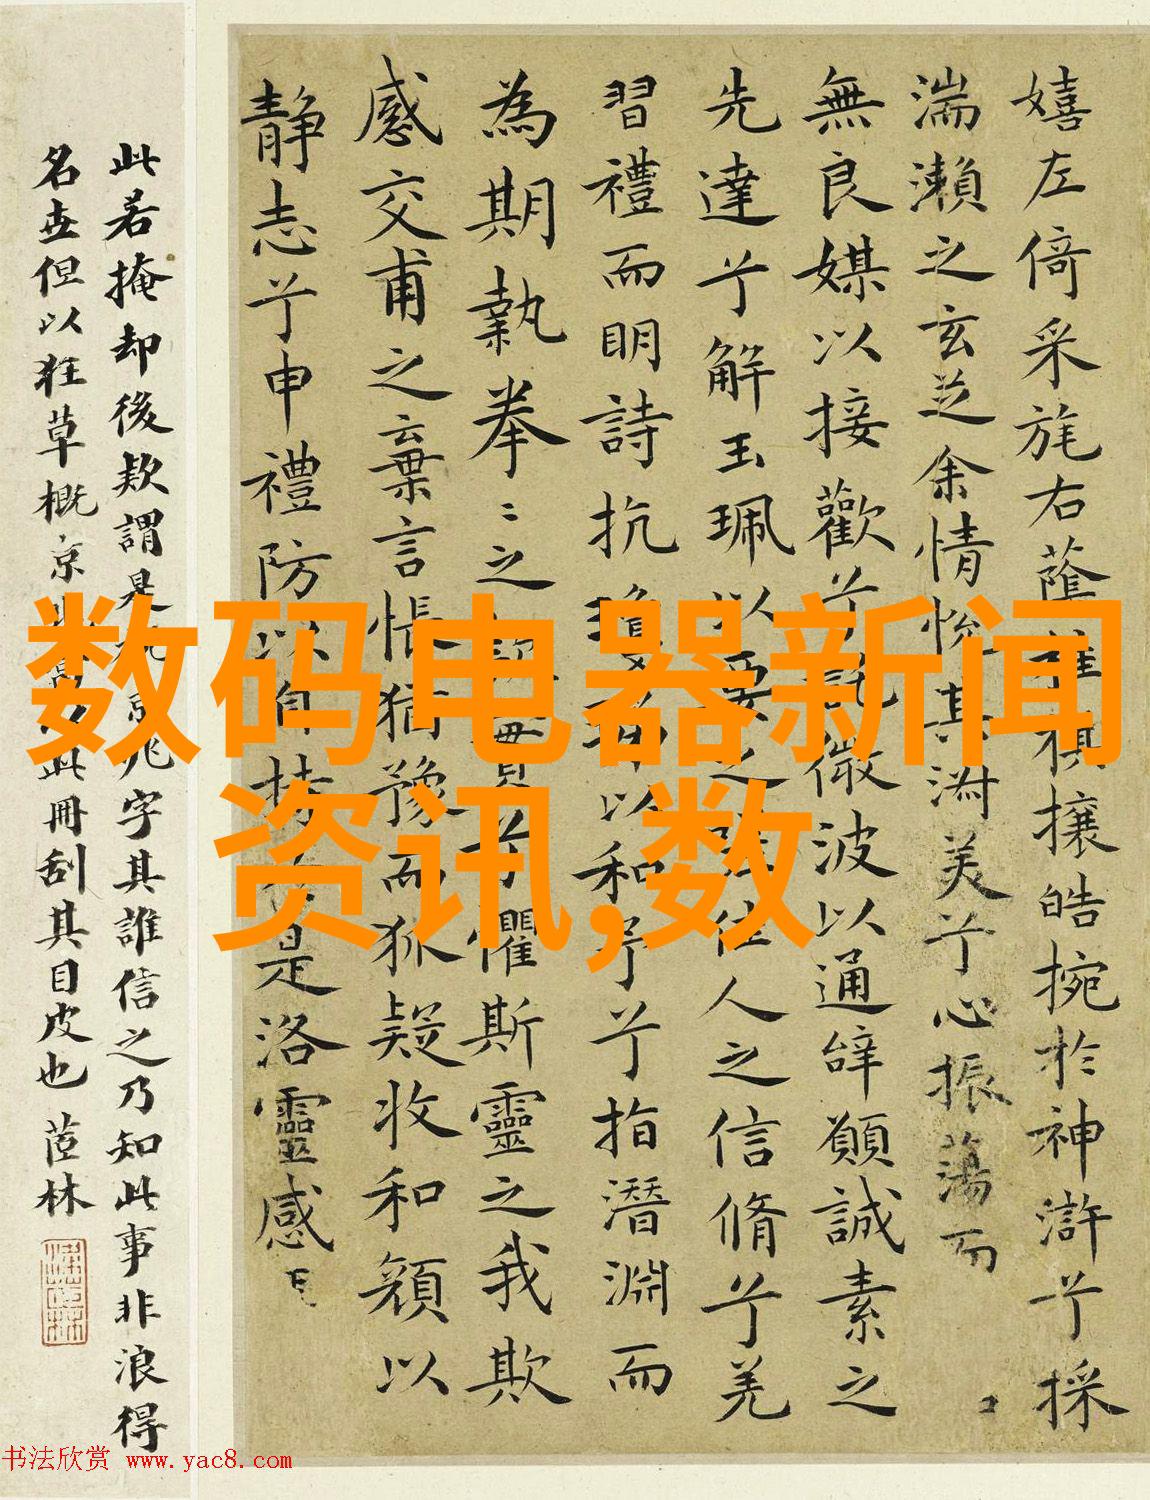 嬉左倚采旄右蔭
攘皓捥於神滸兮採
湍瀨之玄芝余情悅其淑美兮心振蕩而
無良媒以接歡兮託微波以通辭願誠素之
先達兮解玉珮以要之
佳人之信脩兮羌
習禮而明詩抗
以和予兮指潛淵而
為期執拳〻之
懼斯靈之我欺
感交甫之棄言悵猶豫而狐疑收和顏以
靜志兮申禮防以自持
是洛靈感
此若掩却後欵謂是
字其誰信之乃知此事非浪得
名世但以狂草概京
此冊刮其目皮也 茝林
数码电器新闻
资讯,数
书法欣赏 www.yac8.com